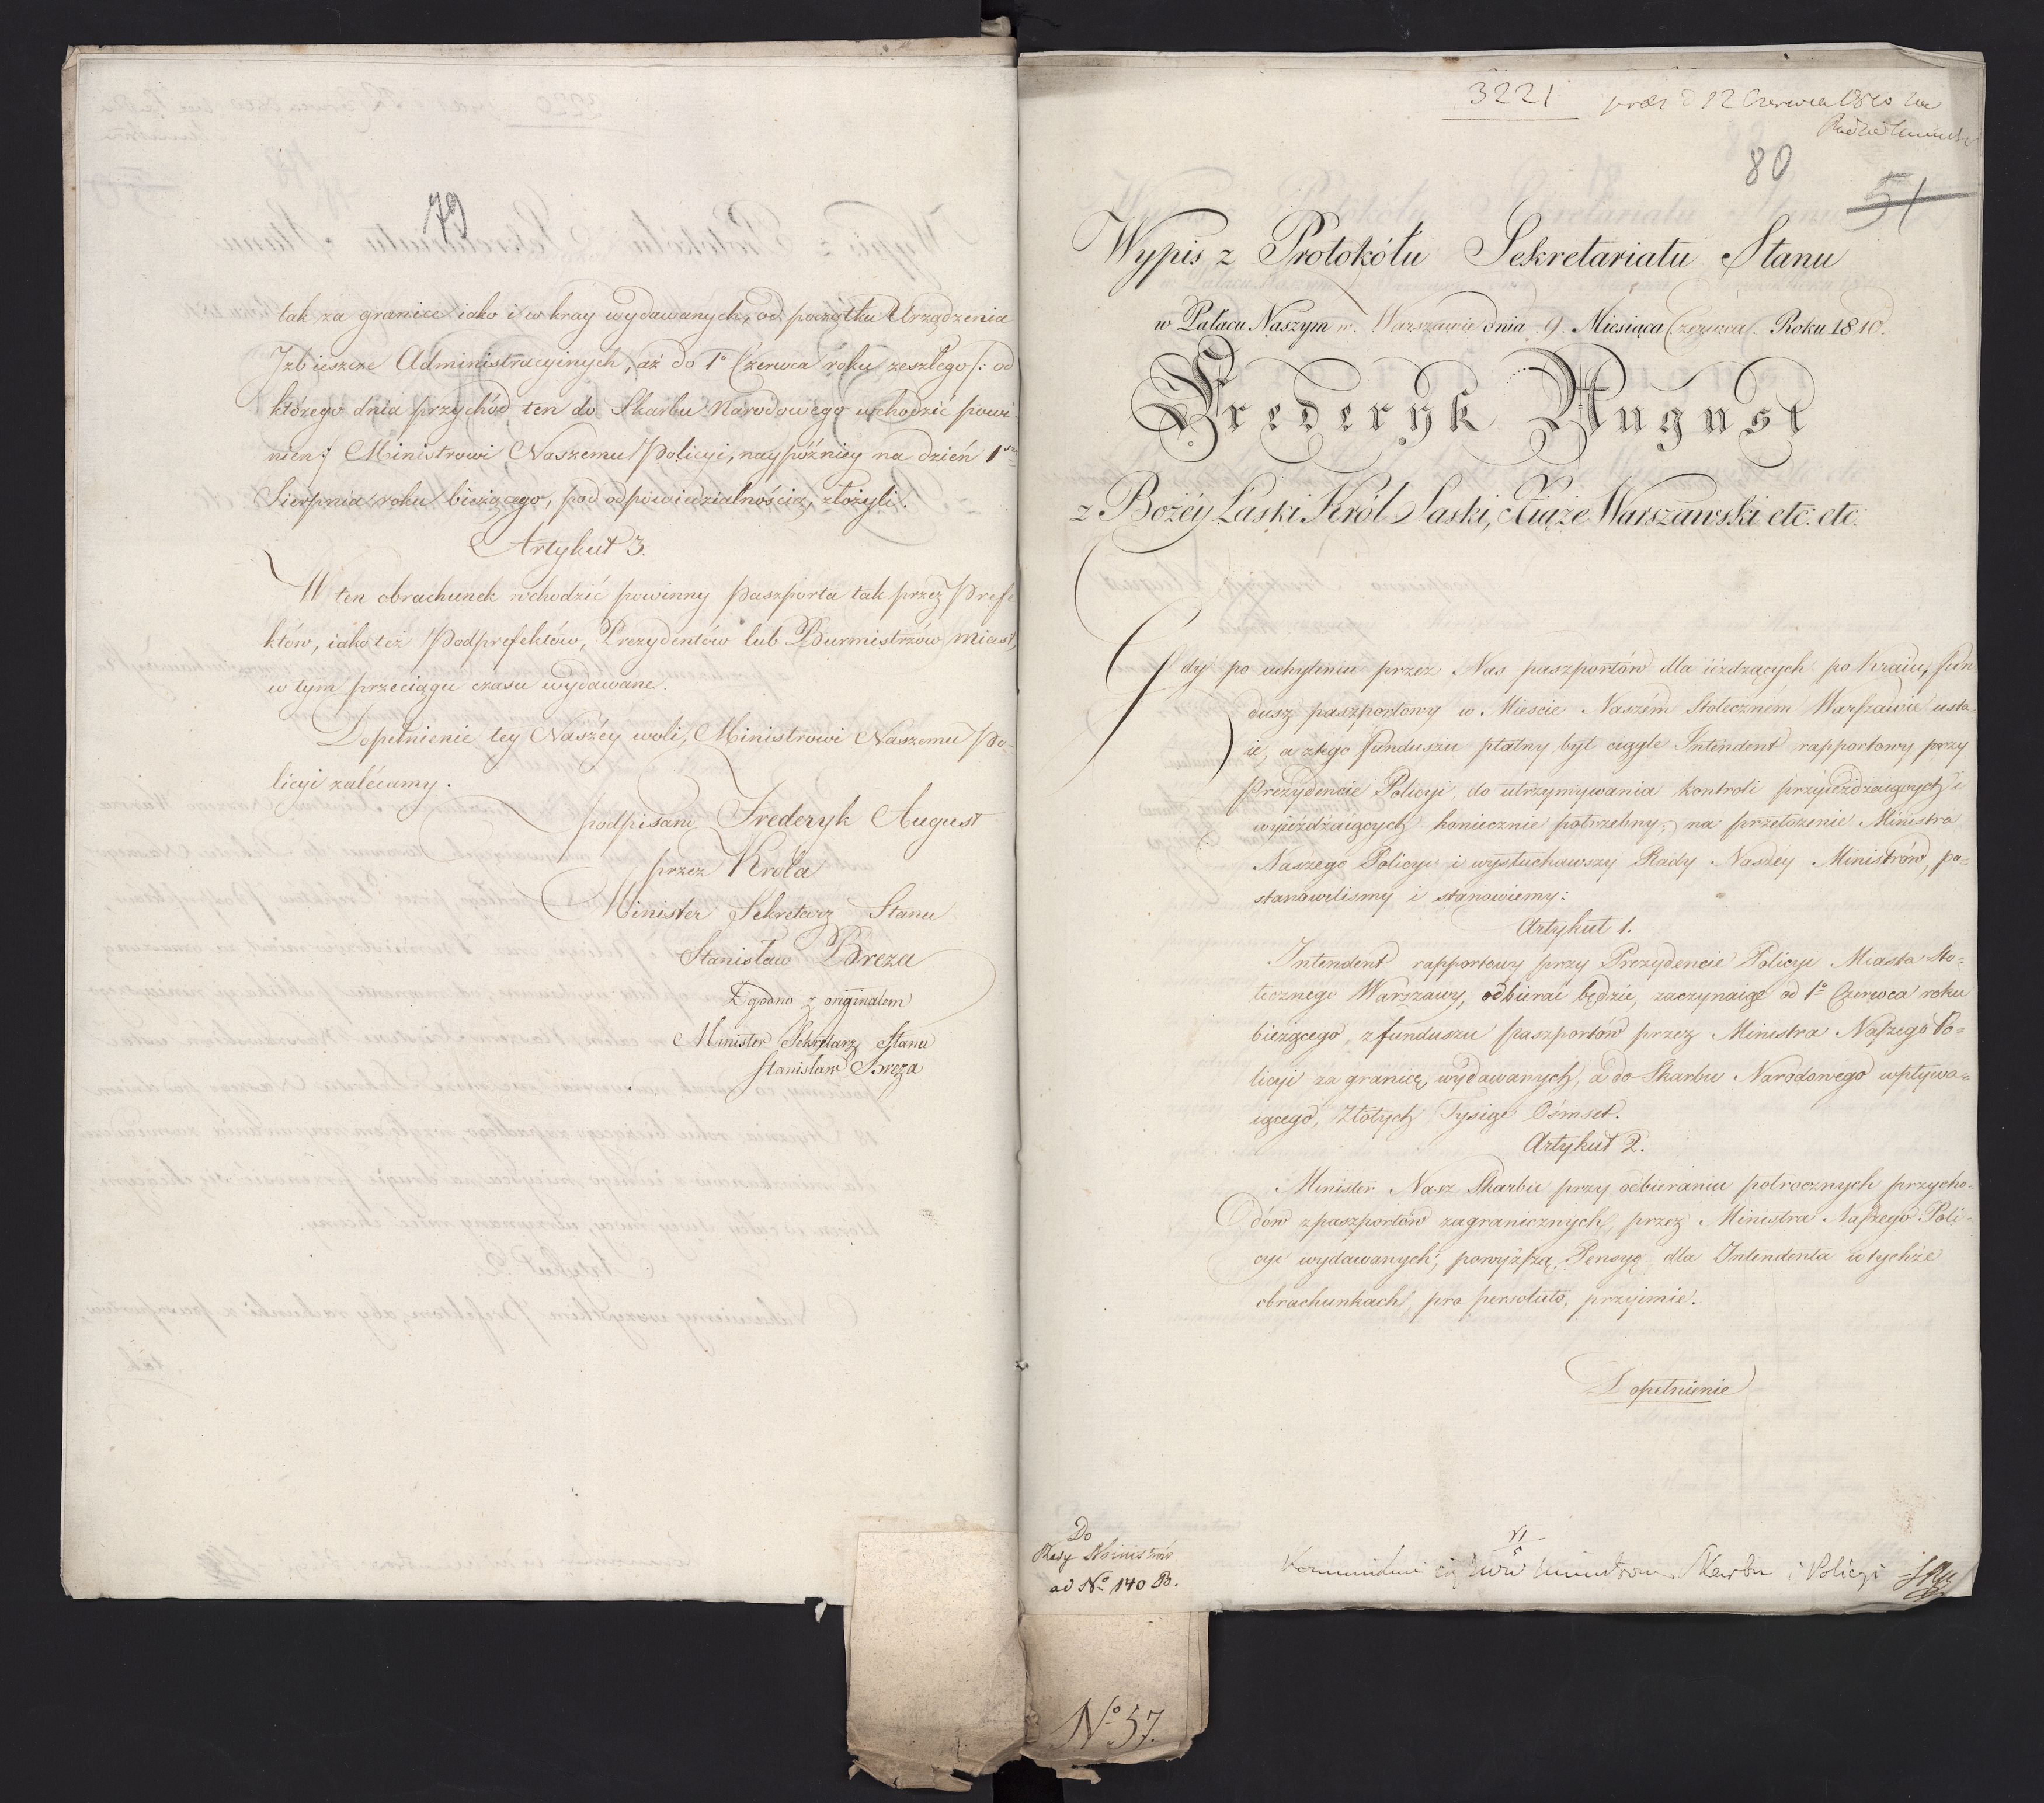 79
tak za granice iako i w kray wydawanych, od początku Urządzenia
Izb ieszcze Administracyinych, aż do 1º Czerwca roku zeszłego /: od
którego dnia przychód ten do Skarbu Narodowego wchodzić powi
nien :/ Ministrowi Naszemu Policyi, naypóźniey na dzień 1
Sierpnia roku bieżącego, pod odpowiedzialnością, złożyli.
Artykuł 3.
W ten obrachunek wchodzić powinny paszporta tak przez Prefe
któw, iako też Podprefektów, Prezydentów lub Burmistrzów miast,
w tym przeciągu czasu wydawane.
Dopełnienie tey Naszéy woli, Ministrowi Naszemu Po-
licyi zalécamy.
podpisano Frederyk August
przez Króla
Minister Sekretarz Stanu
Stanisław Breza
Zgodno z originałem
Minister Sekretarz Stanu
Stanisław Breza
3221 præs d 12 Czerwca 1810 na
Radzie
80
51
Wypis z Protokółu Sekretariatu Stanu
w Pałacu Naszym w Warszawie dnia 9. Miesiąca Czerwca. Roku 1810.
Frederyk August
z Bożéy Łaski Król Saski, Xiąże Warszawski etc: etc:
Gdy po uchyleniu przez Nas paszportów dla ieżdzących po kraiu, fun
dusz paszportowy w Mieście Naszém Stołeczném Warszawie usta-
ie, a z tego funduszu płatny był ciągle Intendent rapportowy przy
Prezydencie Policyi do utrzymywania kontroli przyieżdzaiących i
wyieżdżaiących koniecznie potrzebny; na przełożenie Ministra
Naszego Policyi i wysłuchawszy Rady Naszéy Ministrów, po-
stanowiliśmy i stanowiemy:
Artykuł 1.
Intendent rapportowy przy Prezydencie Policyi Miasta Sto-
łecznego Warszawy, odbierać będzie, zaczynaiąc od 1º Czerwca roku
bieżącego, z funduszu paszportów przez Ministra Naszego Po-
licyi za granicę, wydawanych, a do Skarbu Narodowego wpływa-
iącego, Złotych Tysiąc Ośmset.
Artykuł 2.
Minister Nasz Skarbu przy odbieraniu połrocznych przycho-
dów z paszportów zagranicznych, przez Ministra Naszego Poli-
cyi wydawanych, powyższą Pensyę dla Intendenta w tychże
obrachunkach pro persoluto, przyimie.
Dopełnienie
Do
Rady Ministrów
ad Nº 140 B.
Skarbu i Policyi
Nº 57.